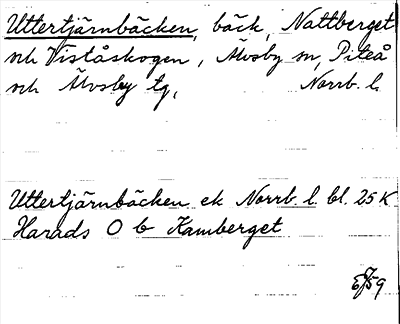 Uttertjärnbäcken, bäck, Nattberget
och Viståskogen, Älvsby sn, Piteå
och Älvsby tg, Norrb. l.
Uttertjärnbäcken ek Norrb. l. bl. 25 K
Harads O b Kamberget
/59